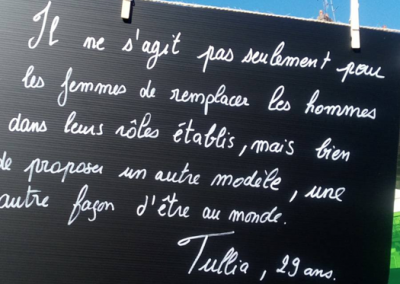 Il ne s'agit pas seulement pour
les femmes de remplacer les hommes
dans leurs rôles établis, mais bien
de proposer un autre modèle, une
autre façon d'être au monde.
Tullia, 29 ans.